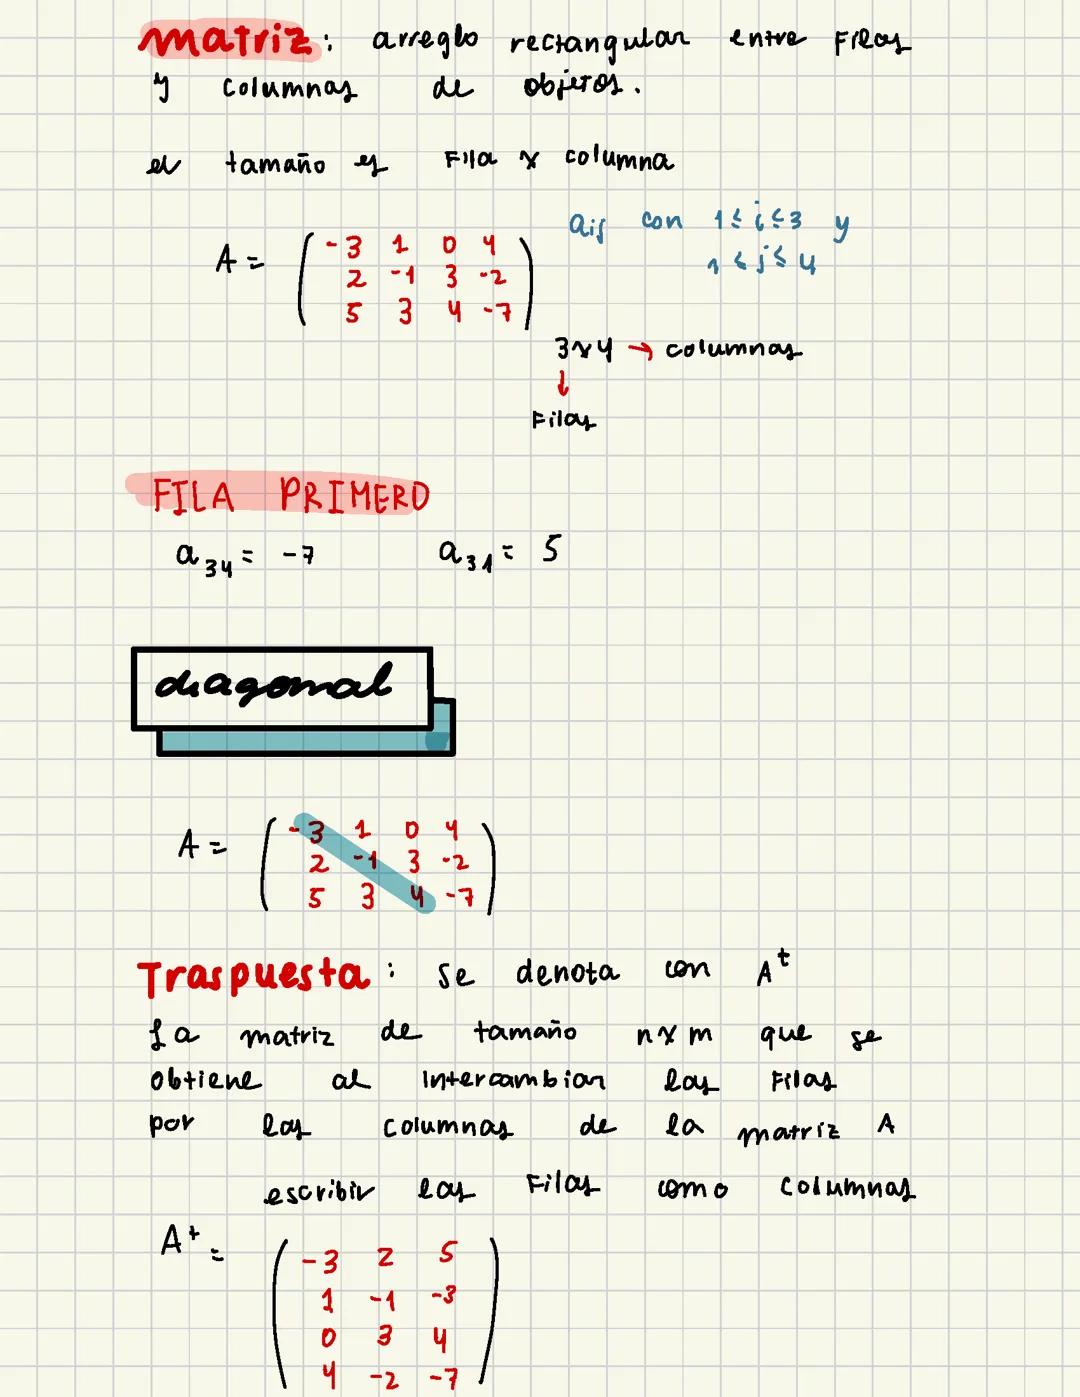 matriz: arreglo rectangular entre Filas
y columnas de objetos.
el tamaño es Fila x columna
aij con 1 ≤ i ≤ 3 y
1 ≤ j ≤ 4
A = ( -3 1 0 4
2 -1 3 -2
5 3 4 -7 )
3x4 → columnas
↓
Filas
FILA PRIMERO
a34 = -7 a31 = 5
diagonal
A = ( -3 1 0 4
2 -1 3 -2
5 3 4 -7 )
Traspuesta: se denota con A^t
La matriz de tamaño nxm que se
obtiene al intercambiar las Filas
por las columnas de la matriz A
escribir las Filas como columnas
A^t = ( -3 2 5
1 -1 -3
0 3 4
4 -2 -7 )